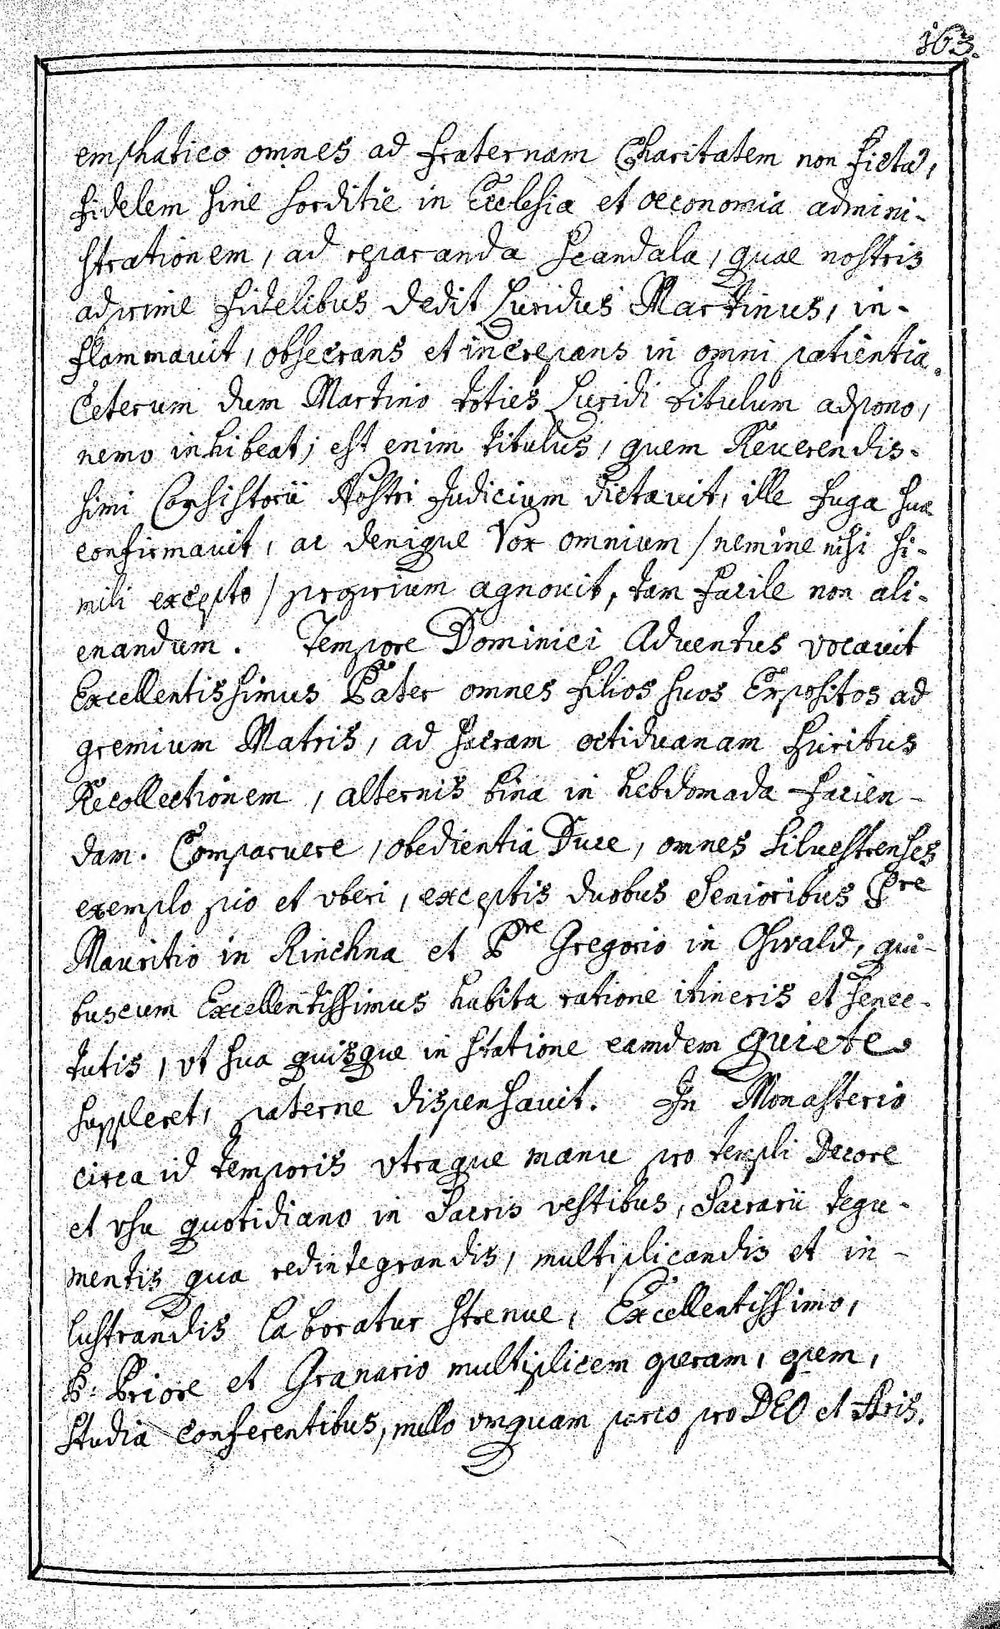 163.
emphatico omnes ad fraternam Charitatem non fictã,
fidelem sine sorditie in Ecclesia et oeconomia admini-
strationem, ad reparanda Scandala, quae nostris
adprime fidelibus dedit Luridus Martinus, in-
flammavit, obsecrans et increpans in omni patientia.
Ceterum dum Martino toties Luridi titulum adpono,
nemo inhibeat; est enim titulus, quem Reverendis-
simi Consistorii Nostri Judicium dictavit, ille fuga sua
confirmavit, ac denique Vox omnium / nemine nisi si-
mili excepto / proprium agnovit, tam facile non ali-
enandum. Tempore Dominici Adventus vocavit
Excellentissimus Pater omnes filios suos Expositos ad
gremium Matris, ad sacram octiduanam Spiritus
Recollectionem, alternis bina in hebdomada facien-
dam. Comparuere, obedientia Duce, omnes Silvestrenses
exemplo pio et vberi, exceptis duobus Senioribus Pre
Mauritio in Rinchna et Pre Gregorio in Oswald, qui-
buscum Excellentissimus habita ratione itineris et senec-
tutis, vt sua quisque in statione eamdem quiete
suppleret, paterne dispensavit. In Monasterio
circa id temporis vtraque manu pro templi Decore
et vsu quotidiano in Sacris vestibus, Sacrarii tegu-
mentis qua redintegrandis, multiplicandis et in-
lustrandis laboratur strenue, Excellentissimo,
P: Priore et Granario multiplicem operam, opem,
studia conferentibus, nullo vmquam parco pro DEO et Aris.